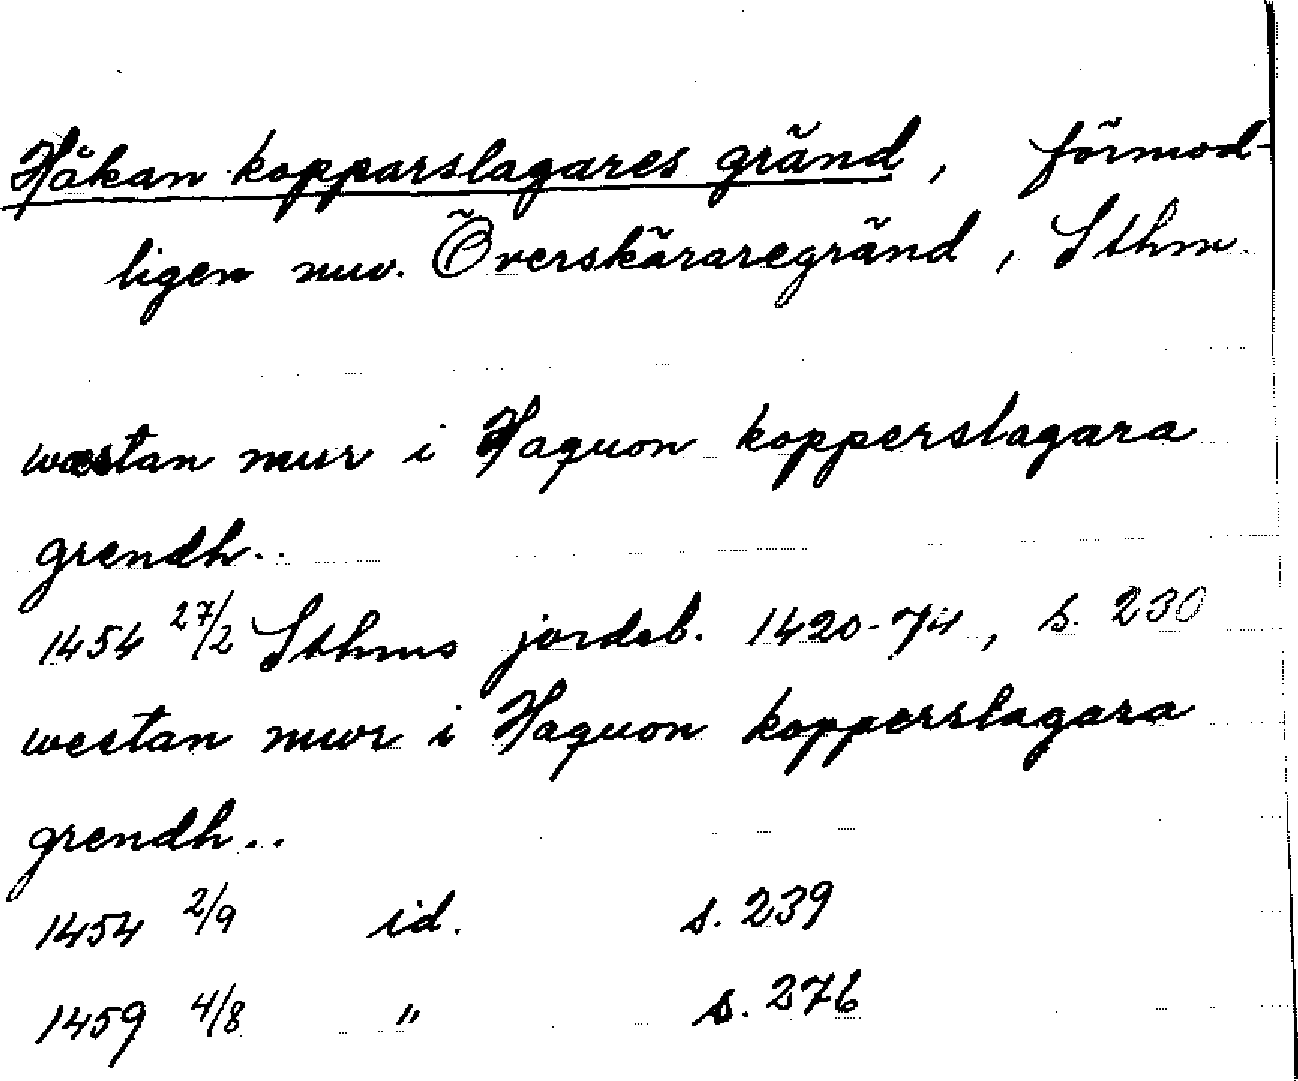 Håkan kopparslagares gränd, förmod-
ligen nuv. Överskäraregränd, Sthm.
wæstan mur i Haquon kopperslagara
grendh..
1454 27/2 Sthms jordeb. 1420-74, s. 230
westan mwr i Haquon kopperslagara
grendh..
1454 2/9 id. s. 239
1459 4/8 " s. 276